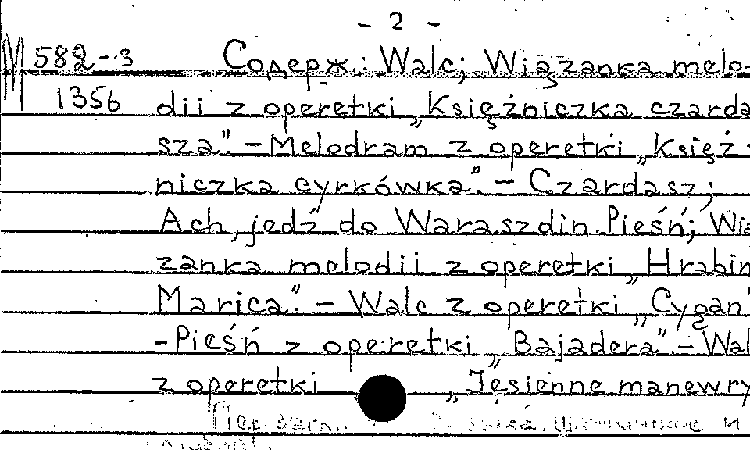 - 2 -
М 582-3 Содерж.: Walc; Wiązanka melo-
1356 dii z operetki „Księżniczka czarda
sza". - Melodram z operetki „Księż-
niczka cyrkówka". - Czardasz;
Ach, jedź do Waraszdin. Pieśń; Wią
zanka melodii z operetki „Hrabin
Marica". - Walc z operetki „Cygan
-Pieśń z operetki „Bajadera" - Wal
z operetki „Jesienne manewry